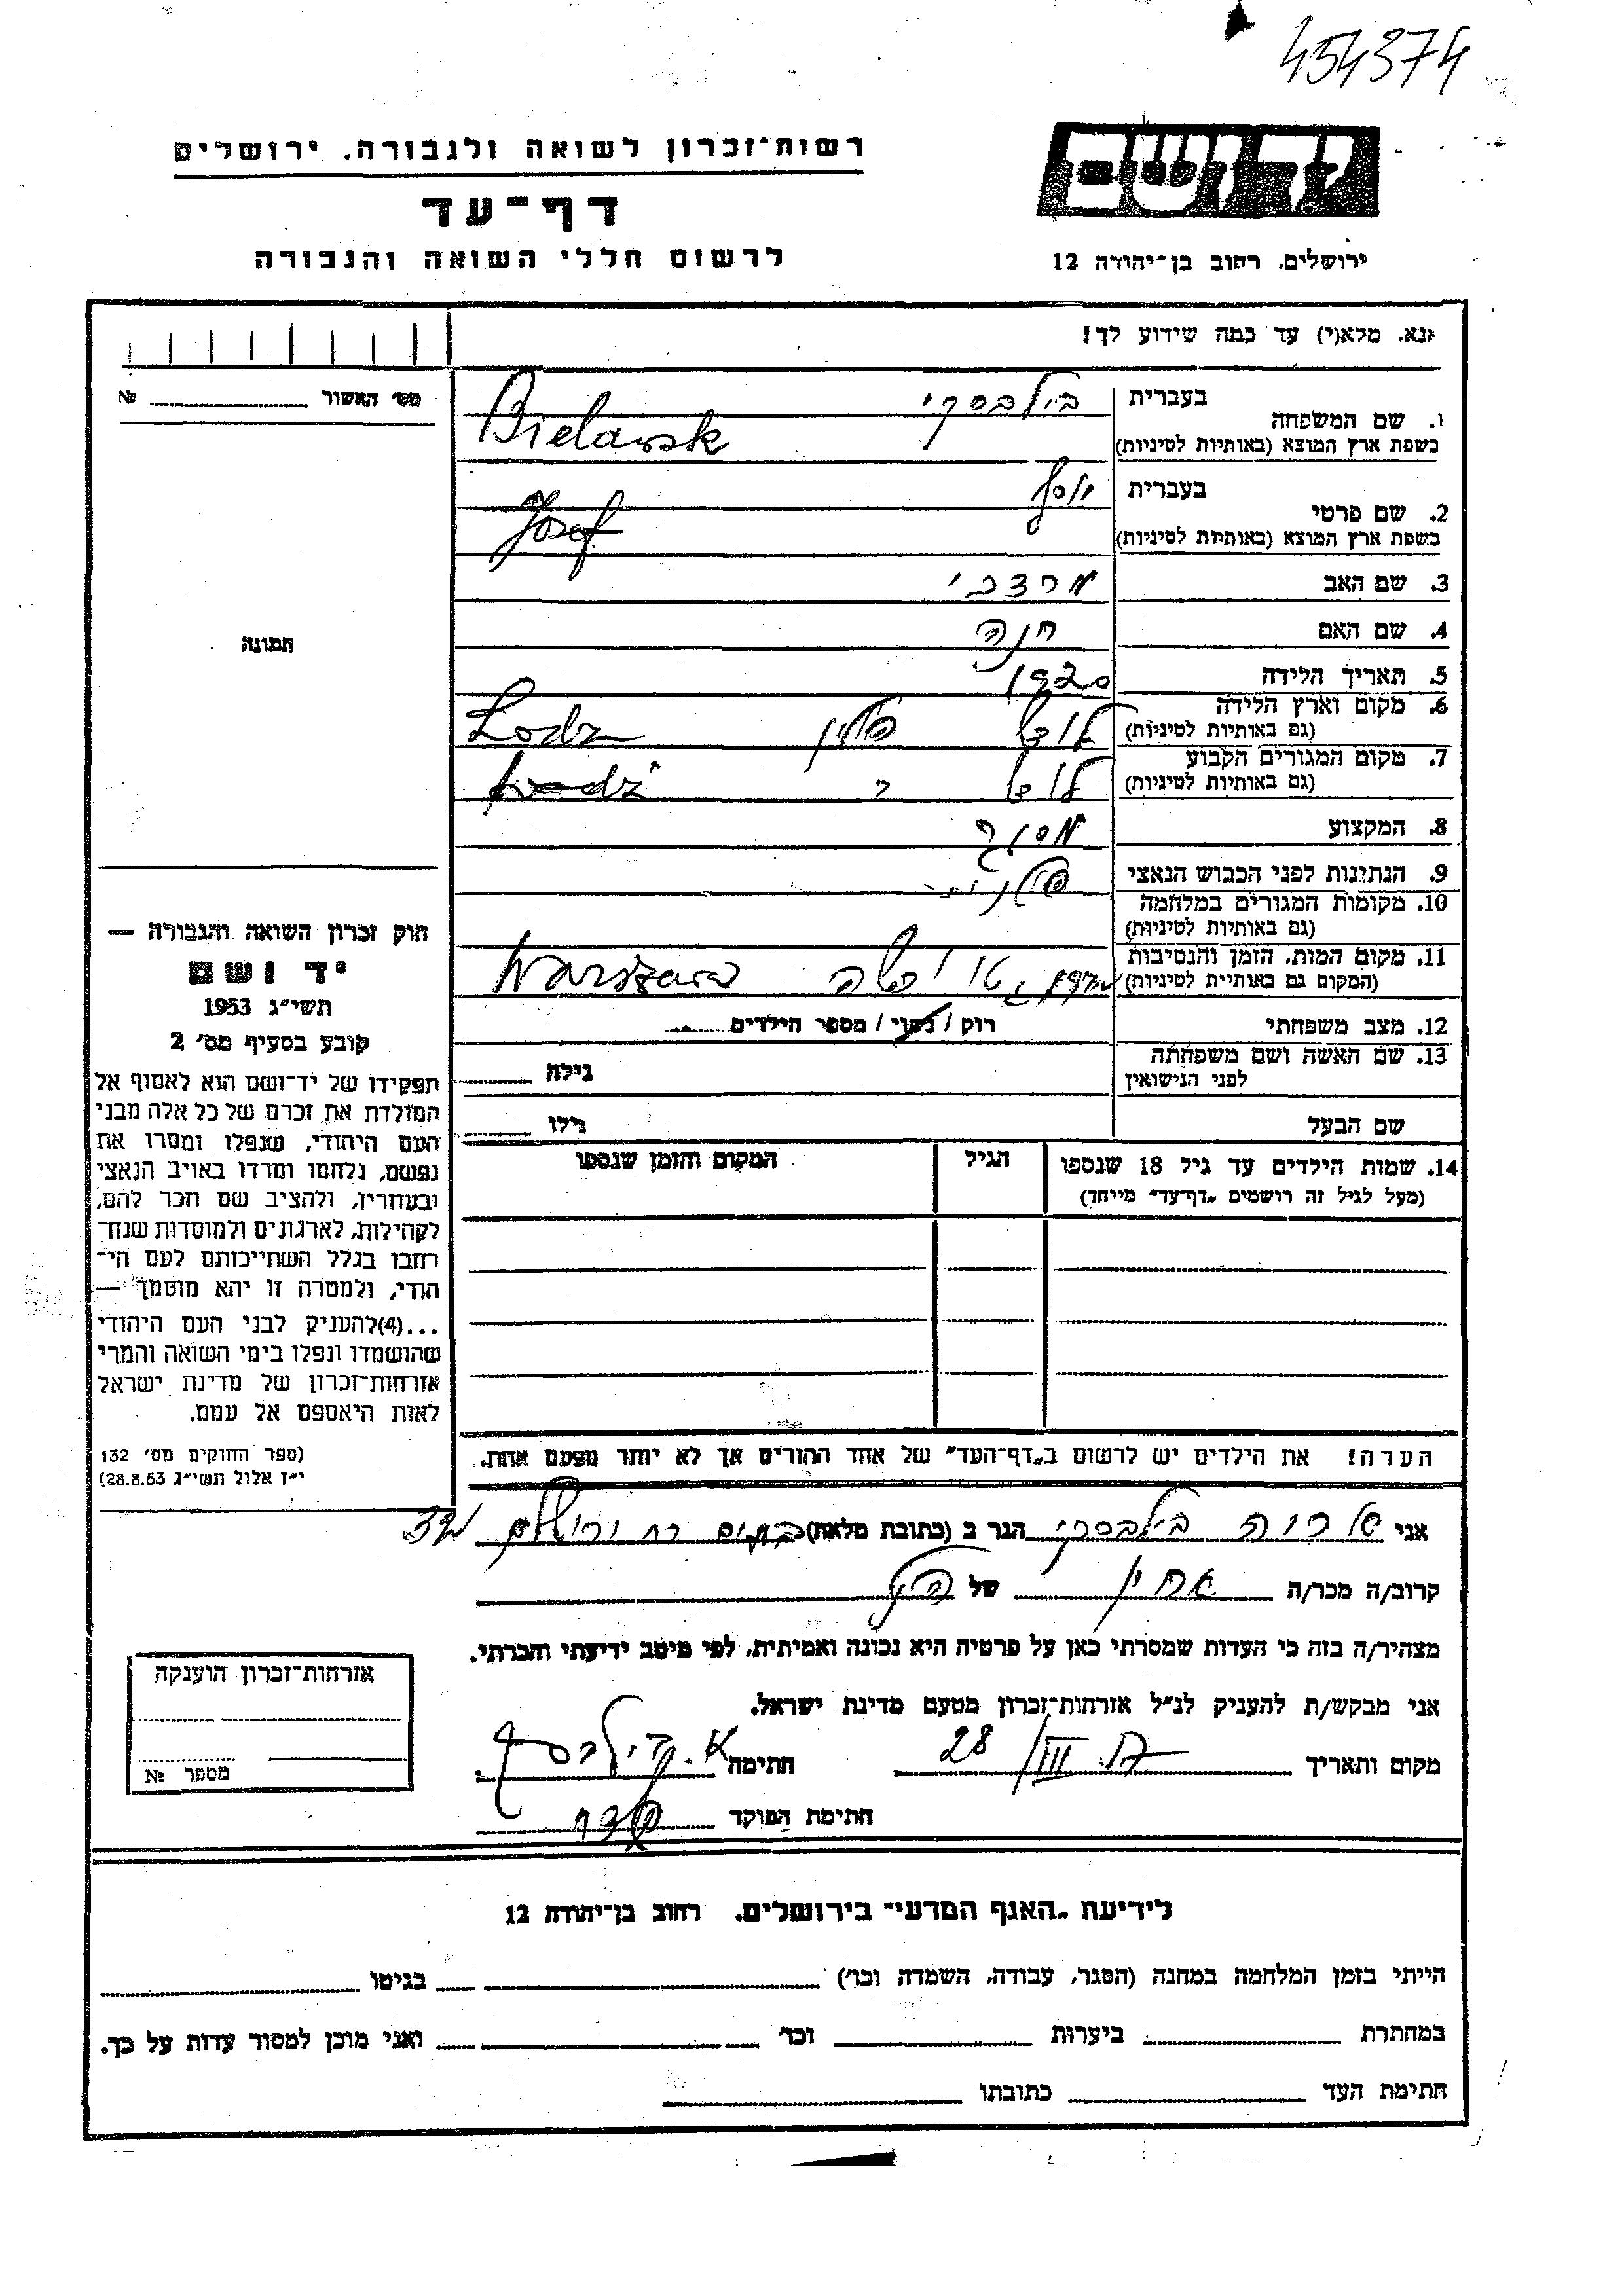 454374
ידושם
רשות־זכרון לשואה ולגבורה, ירושלים
דף־עד
ירושלים, רחוב בן־יהודה 12
לרשום חללי השואה והגבורה
נא, מלא(י) עד כמה שידוע לך!
מס׳ האשור №
1. שם המשפחה בעברית בילבסקי
בשפת ארץ המוצא (באותיות לטיניות) Bielawsk
2. שם פרטי בעברית יוסף
בשפת ארץ המוצא (באותיות לטיניות) Josef
3. שם האב מרדכי
4. שם האם חנה
תמונה
5. תאריך הלידה 1920
6. מקום וארץ הלידה
(גם באותיות לטיניות) לודז פולין Lodz
7. מקום המגורים הקבוע
(גם באותיות לטיניות) לודז Lodż
8. המקצוע
9. הנתינות לפני הכבוש הנאצי פולנית
10. מקומות המגורים במלחמה
(גם באותיות לטיניות)
11. מקום המות, הזמן והנסיבות
(המקום גם באותיות לטיניות) Warszawa
12. מצב משפחתי רוק / נשוי / מספר הילדים
13. שם האשה ושם משפחתה
לפני הנישואין גילה
שם הבעל גילו
14. שמות הילדים עד גיל 18 שנספו הגיל המקום והזמן שנספו
(מעל לגיל זה רושמים „דף־עד” מייחד)
חוק זכרון השואה והגבורה —
יד ושם
תשי״ג 1953
קובע בסעיף מס׳ 2
תפקידו של יד־ושם הוא לאסוף אל
המולדת את זכרם של כל אלה מבני
העם היהודי, שנפלו ומסרו את
נפשם, נלחמו ומרדו באויב הנאצי
ובעוזריו, ולהציב שם וזכר להם,
לקהילות, לארגונים ולמוסדות שנח־
רבו בגלל השתייכותם לעם הי־
הודי, ולמטרה זו יהא מוסמך —
...(4) להעניק לבני העם היהודי
שהושמדו ונפלו בימי השואה והמרי
אזרחות־זכרון של מדינת ישראל
לאות היאספם אל עמם.
(ספר החוקים מס׳ 132
י״ז אלול תשי״ג 28.8.53)
הערה! את הילדים יש לרשום ב„דף־העד” של אחד ההורים אך לא יותר מפעם אחת.
אני בילבסקי הגר ב (כתובת מלאה)
קרוב/ה מכר/ה של
מצהיר/ה בזה כי העדות שמסרתי כאן על פרטיה היא נכונה ואמיתית, לפי מיטב ידיעתי והכרתי.
אני מבקש/ת להעניק לנ״ל אזרחות־זכרון מטעם מדינת ישראל.
מקום ותאריך 28/III חתימה
חתימת הפוקד
אזרחות־זכרון הוענקה
מספר №
לידיעת „האגף המדעי” בירושלים, רחוב בן־יהודה 12
הייתי בזמן המלחמה במחנה (הסגר, עבודה, השמדה וכו׳) בגיטו
במחתרת ביערות וכו׳ ואני מוכן למסור עדות על כך.
חתימת העד כתובתו